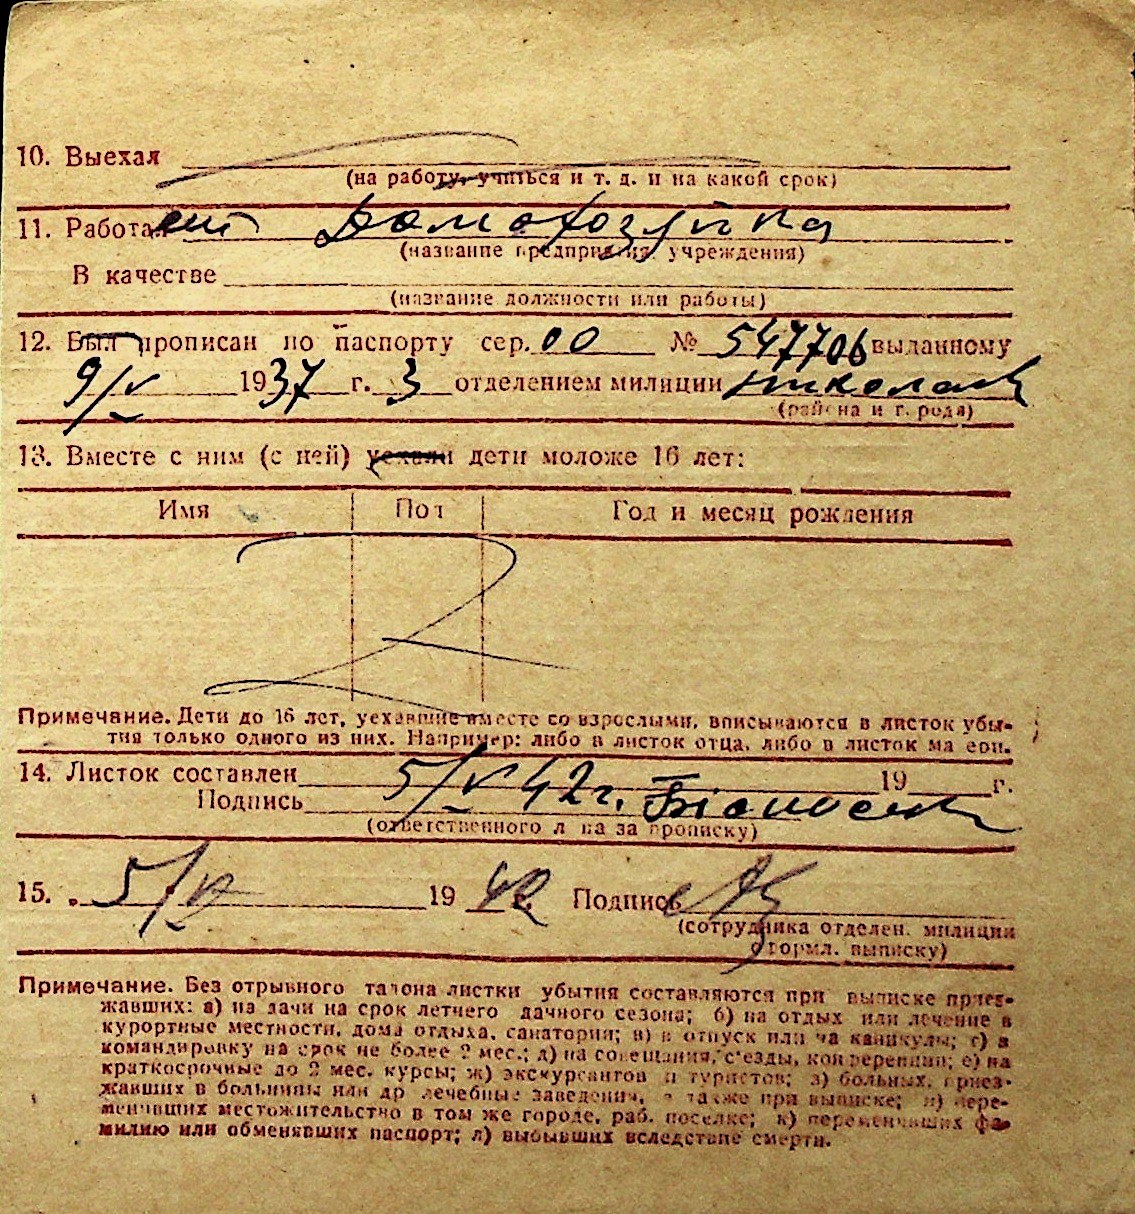 10. Выехал
(на работу, учиться и т. д. и на какой срок)
11. Работает Домохозяйка
(название предприятия, учреждения)
В качестве
(название должности или работы)
12. Был прописан по паспорту сер. 00 № 547706 выданному
9/V 1937 г. 3 отделением милиции Николаев
(района и города)
13. Вместе с ним (с ней) уехали дети моложе 16 лет:
Имя Пол Год и месяц рождения
Примечание. Дети до 16 лет, уехавшие вместе со взрослыми, вписываются в листок убы-
тия только одного из них. Например: либо в листок отца, либо в листок матери.
14. Листок составлен 5/V 42 г. 19 г.
Подпись
(ответственного лица за прописку)
15. 5/V 1942 Подпись
(сотрудника отделен. милиции
оформл. выписку)
Примечание. Без отрывного талона листки убытия составляются при выписке приез-
жавших: а) на дачи на срок летнего дачного сезона; б) на отдых или лечение в
курортные местности, дома отдыха, санатории; в) в отпуск или на каникулы; г) в
командировку на срок не более 2 мес.; д) на совещания, с'езды, конференции; е) на
краткосрочные до 2 мес. курсы; ж) экскурсантов и туристов; з) больных, приез-
жавших в больницы или др лечебные заведения, а также при выписке; и) пере-
менивших местожительство в том же городе, раб. поселке; к) переменивших фа-
милию или обменявших паспорт; л) выбывших вследствие смерти.